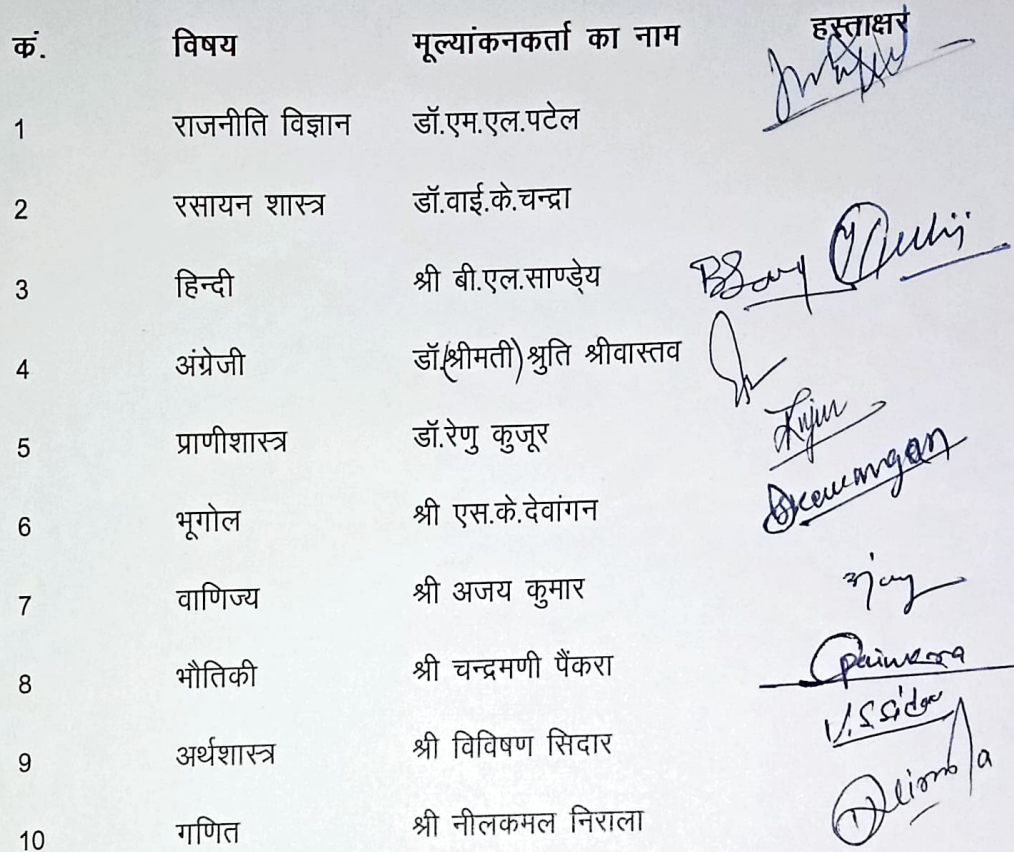 कं. विषय मूल्यांकनकर्ता का नाम हस्ताक्षर
1 राजनीति विज्ञान डॉ.एम.एल.पटेल
2 रसायन शास्त्र डॉ.वाई.के.चन्द्रा
3 हिन्दी श्री बी.एल.साण्ड़ेय
4 अंग्रेजी डॉ.(श्रीमती) श्रुति श्रीवास्तव
5 प्राणीशास्त्र डॉ.रेणु कुजूर
6 भूगोल श्री एस.के.देवांगन
7 वाणिज्य श्री अजय कुमार
8 भौतिकी श्री चन्द्रमणी पैंकरा
9 अर्थशास्त्र श्री विविषण सिदार
10 गणित श्री नीलकमल निराला